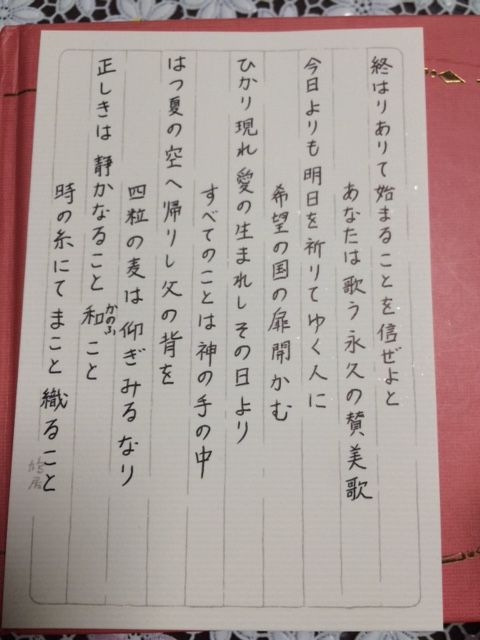 終はりありて始まることを信ぜよと
あなたは歌う永久の賛美歌
今日よりも明日を祈りてゆく人に
希望の国の扉開かむ
ひかり現れ愛の生まれしその日より
すべてのことは神の手の中
はつ夏の空へ帰りし父の背を
四粒の麦は仰ぎみるなり
正しきは静かなること和こと
かのふ
時の糸にてまこと織ること